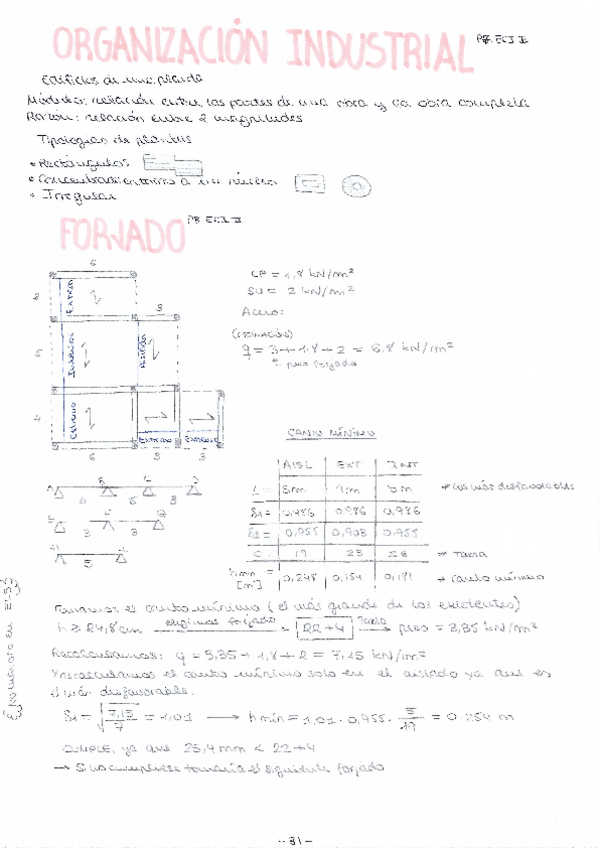 ORGANIZACIÓN INDUSTRIAL
Edificios de una planta
Módulo: relación entre las partes de una obra y la obra completa
Razón: relación entre 2 magnitudes
Tipologías de plantas
• Rectangulos
• Concentrad en torno a un núcleo
• Irregular
FORJADO
6
3
5
4
Extremo
3
Interior
Aislado
Extremo
Extremo
Extremo
6 3 3
CP = 1,8 kN/m²
SU = 2 kN/m²
Acero:
(ESTIMACIÓN)
q = 3 + 1,8 + 2 = 6,8 kN/m²
peso forjado
CANTO MÍNIMO
AISL EXT INT
L 5m 4m 5m → los más desfavorables
δ1 = 0,986 0,986 0,986
δ2 = 0,955 0,903 0,955
C 19 23 26 → Tabla
hmin [m] 0,248 0,154 0,181 → canto mínimo
A B C D
4 5 3
3 3
5
Tomamos el canto mínimo (el más grande de los existentes)
h ≥ 24,8 cm elegimos forjado → 22+4 Tabla → peso = 3,35 kN/m²
Recalculamos: q = 3,35 + 1,8 + 2 = 7,15 kN/m²
Precalculamos el canto mínimo solo en el aislado ya que es
el más desfavorable.
δ1 = √7,15/7 = 1,01 → hmín = 1,01 · 0,955 · 5/19 = 0,254 m
CUMPLE, ya que 25,4 mm < 22+4
→ Si no cumpliese tomaría el siguiente forjado
- 31 -